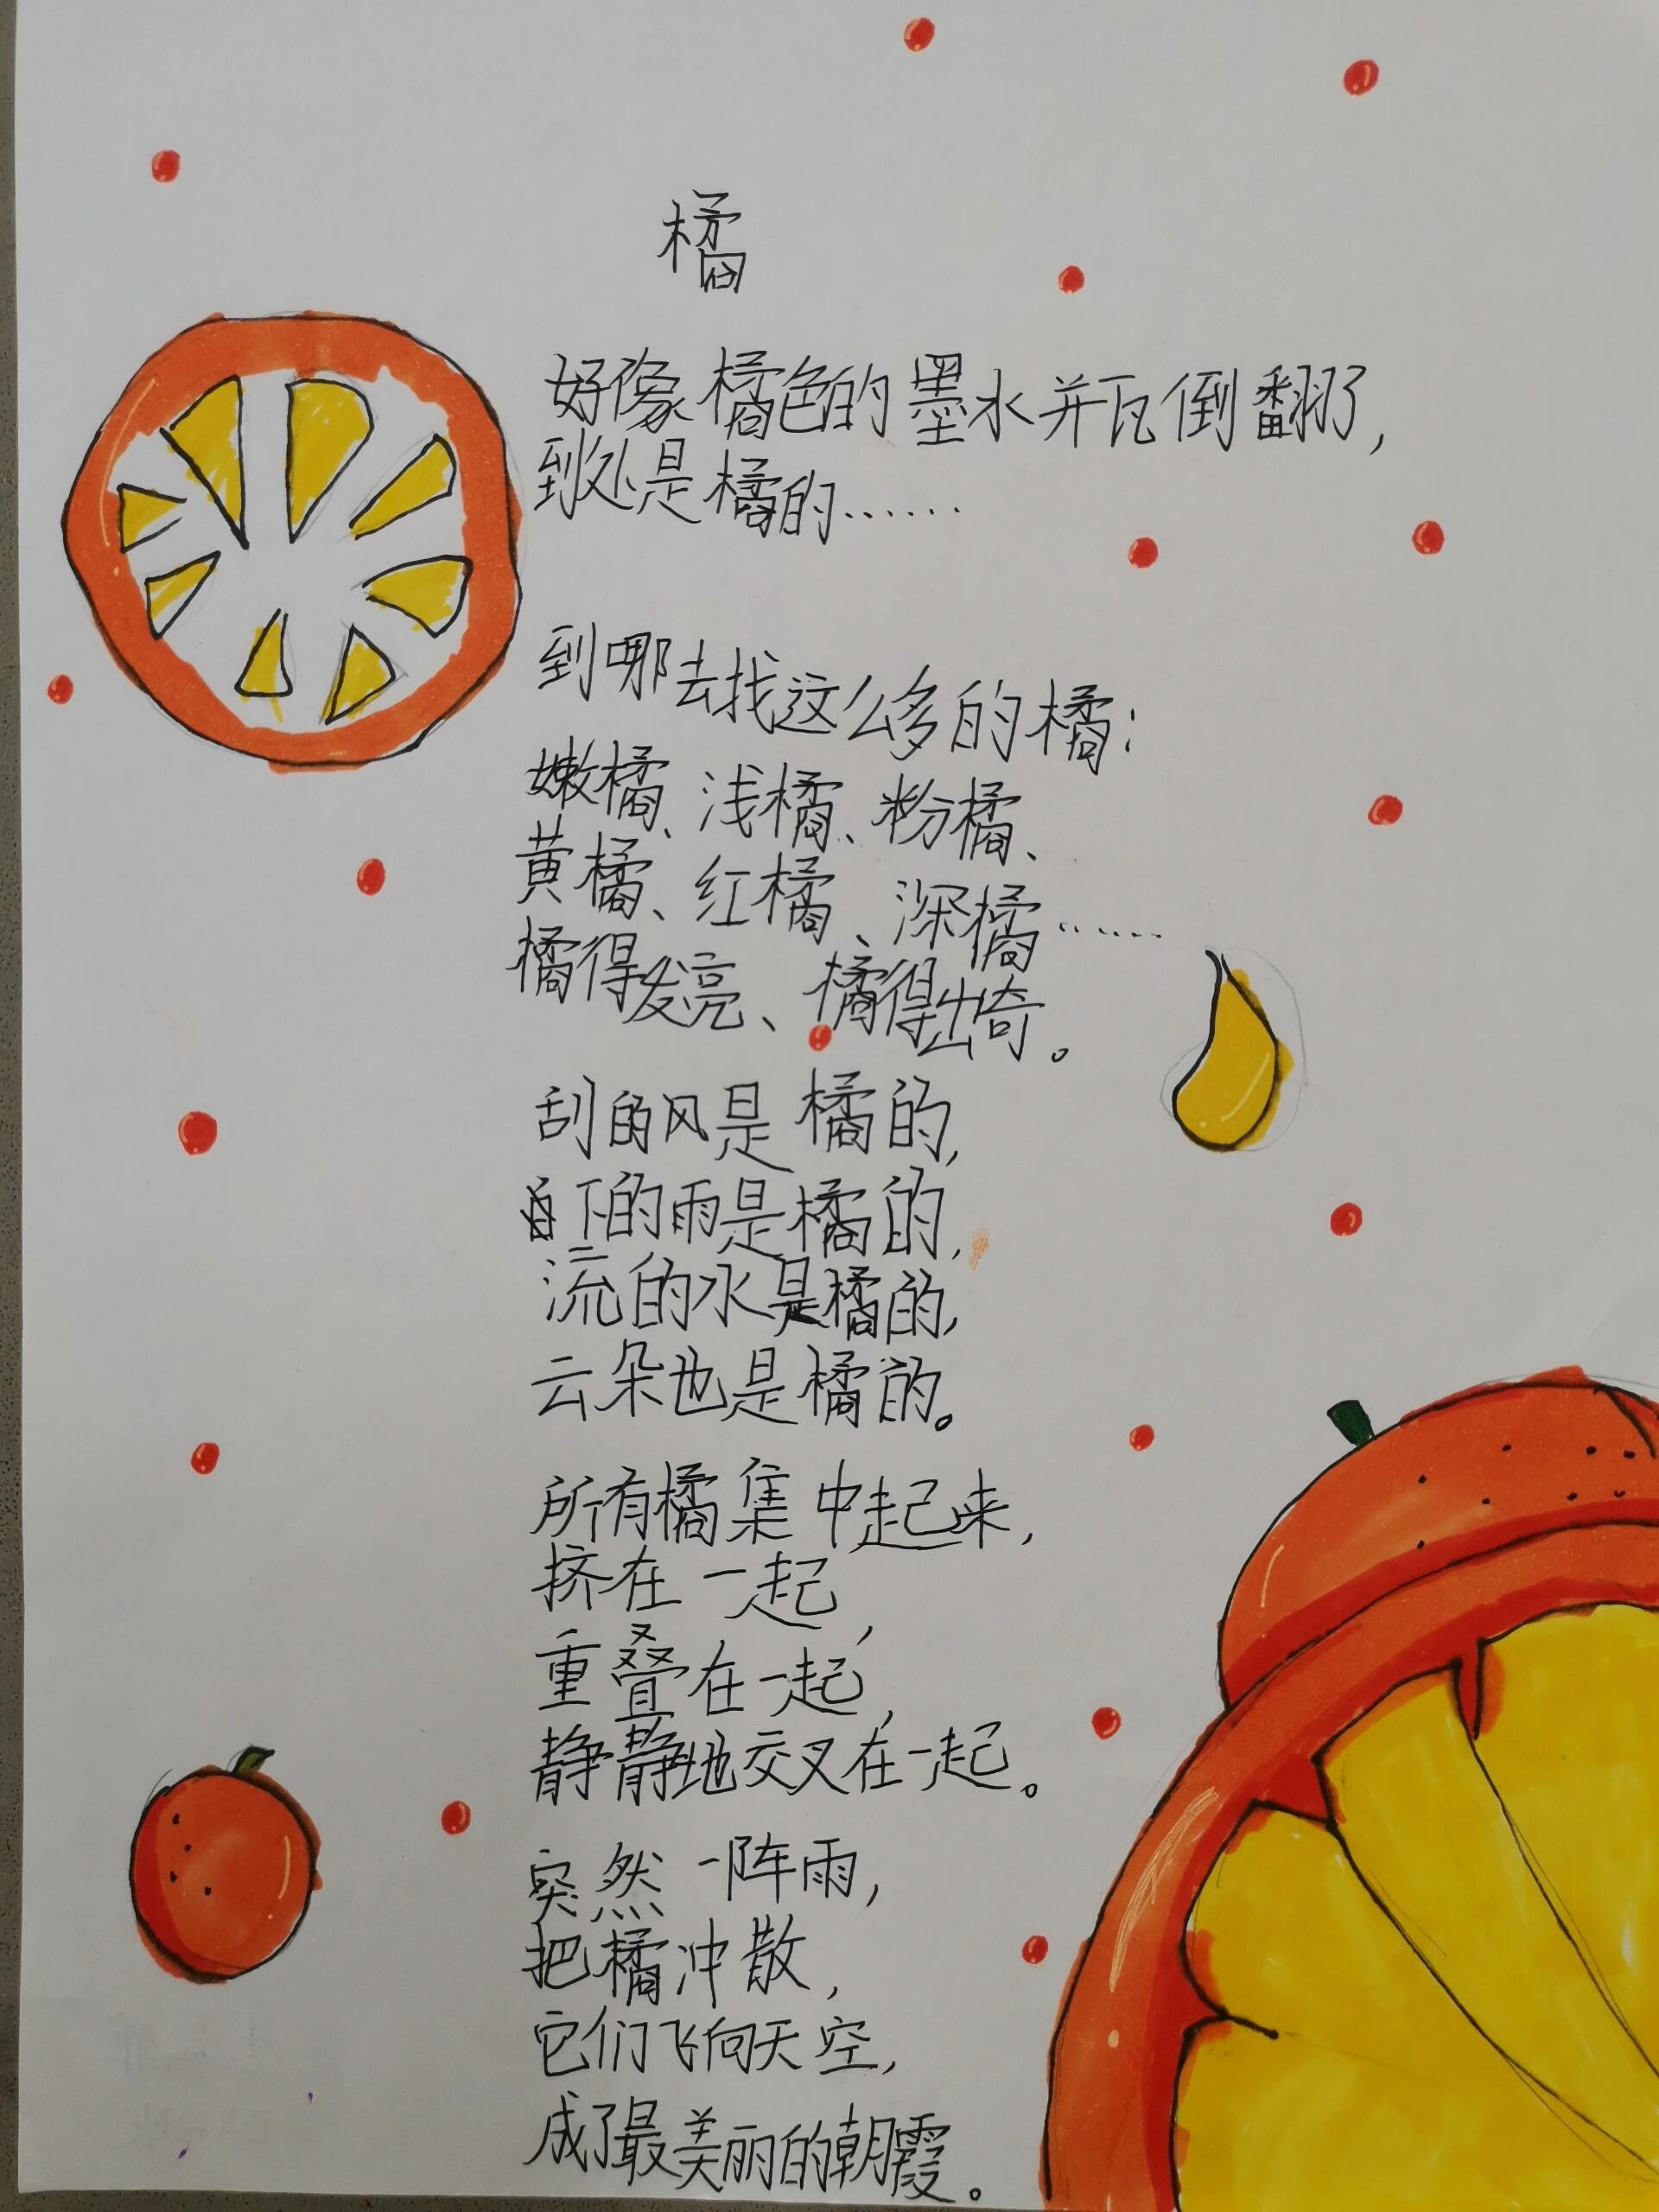 橘
好像橘色的墨水瓶倒翻了，
到处是橘的……
到哪去找这么多的橘：
嫩橘、浅橘、粉橘、
黄橘、红橘、深橘……
橘得发亮、橘得出奇。
刮的风是橘的，
下的雨是橘的，
流的水是橘的，
云朵也是橘的。
所有橘集中起来，
挤在一起，
重叠在一起，
静静地交叉在一起。
突然一阵雨，
把橘冲散，
它们飞向天空，
成了最美丽的朝霞。